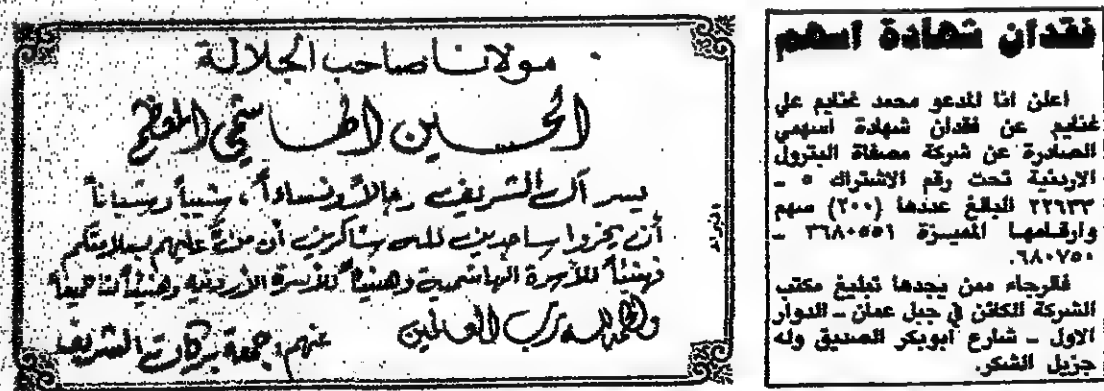 مولانا صاحب الجلالة
الحسين الهاشمي المعظم
يسر آل الشريف رجالاً ونساءاً، شيباً وشباناً
أن يخروا ساجدين لله شاكرين أن منّ عليهم بسلامتكم
فهنئياً للأسرة الهاشمية وهنيئاً للأسرة الأردنية وهنيئاً لنا جميعاً
والحمد لله رب العالمين
عنهم: جمعة بركات الشريف
فقدان شهادة اسهم
اعلن انا المدعو محمد غنايم علي
غنايم عن فقدان شهادة اسهمي
الصادرة عن شركة مصفاة البترول
الاردنية تحت رقم الاشتراك ٥ -
٢٢٦٣٣ البالغ عددها (٢٠٠) سهم
وارقامها المميزة ٣٦٨٠٥٥١ -
٦٨٠٧٥٠.
فالرجاء ممن يجدها تبليغ مكتب
الشركة الكائن في جبل عمان - الدوار
الاول - شارع أبوبكر الصديق وله
جزيل الشكر.